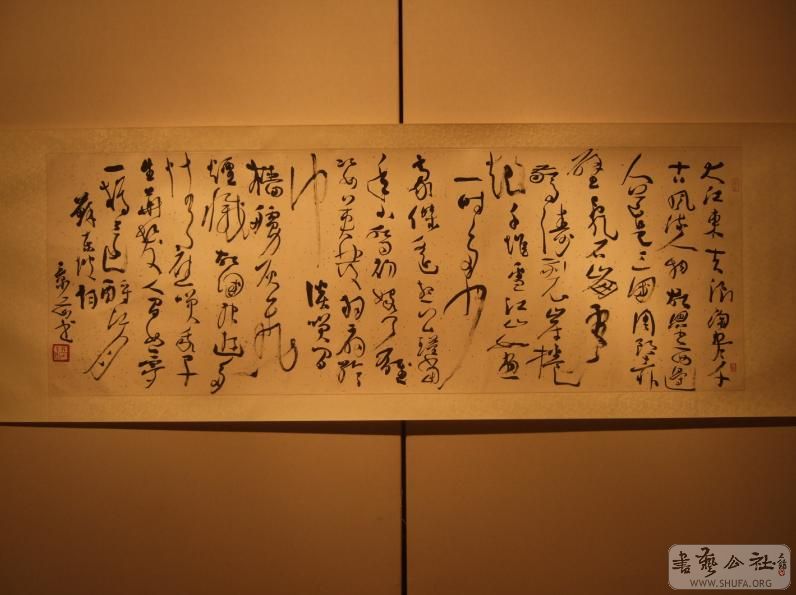 大江東去浪淘盡千
古風流人物故壘西邊
人道是三國周郎赤
壁亂石崩雲
驚濤裂岸捲
起千堆雪江山如畫
一時多少
豪傑遙想公瑾當
年小喬初嫁了雄
姿英發羽扇綸
巾談笑間
檣艣灰飛
煙滅故國神遊多
情應笑我早
生華髮人間如夢
一樽還酹江月
蘇東坡詞
書藝公社
WWW.SHUFA.ORG